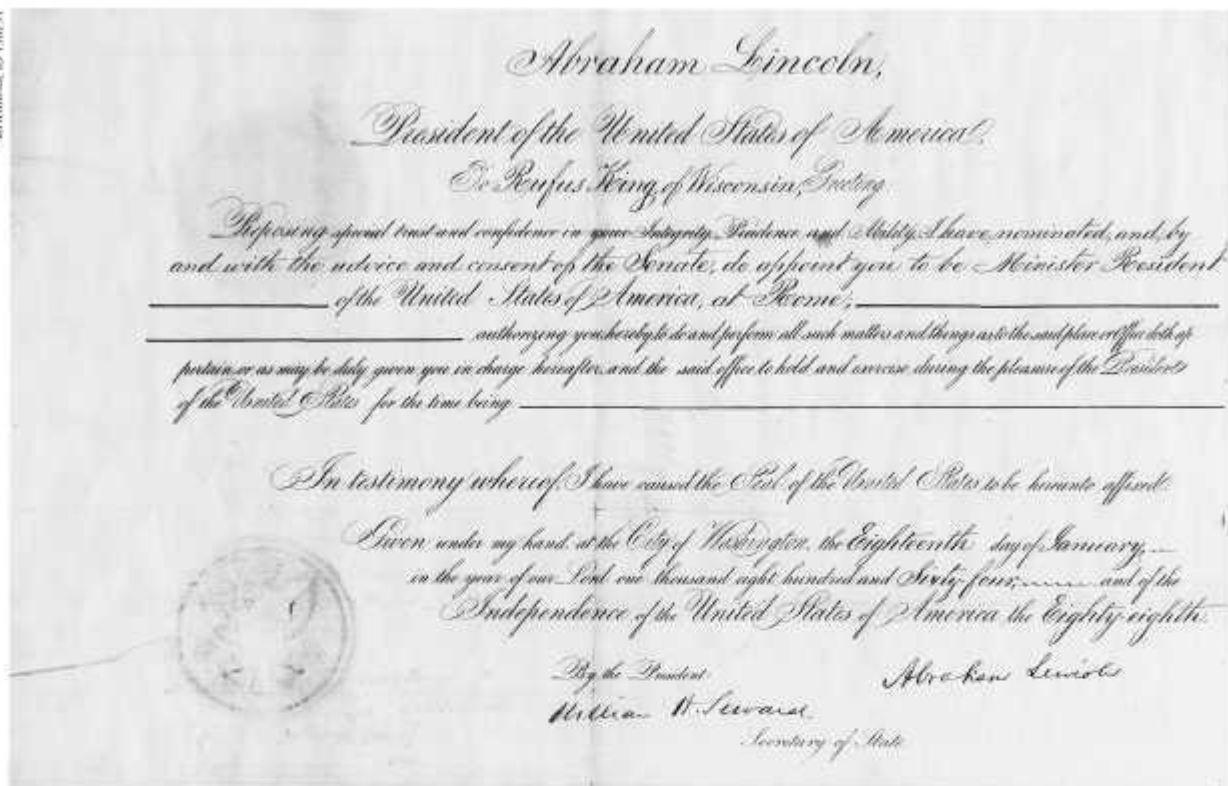 Abraham Lincoln,
President of the United States of America.
To Rufus King, of Wisconsin, Greeting
Reposing special trust and confidence in your Integrity, Prudence and Ability, I have nominated, and, by
and with the advice and consent of the Senate, do appoint you to be Minister Resident
of the United States of America, at Rome;
authorizing you hereby to do and perform all such matters and things as to the said place or Office doth ap
pertain, or as may be duly given you in charge hereafter, and the said office to hold and exercise during the pleasure of the President
of the United States for the time being
In testimony whereof, I have caused the Seal of the United States to be hereunto affixed.
Given under my hand at the City of Washington, the Eighteenth day of January,
in the year of our Lord one thousand eight hundred and Sixty-four, and of the
Independence of the United States of America, the Eighty-eighth.
By the President
Abraham Lincoln
William H. Seward.
Secretary of State